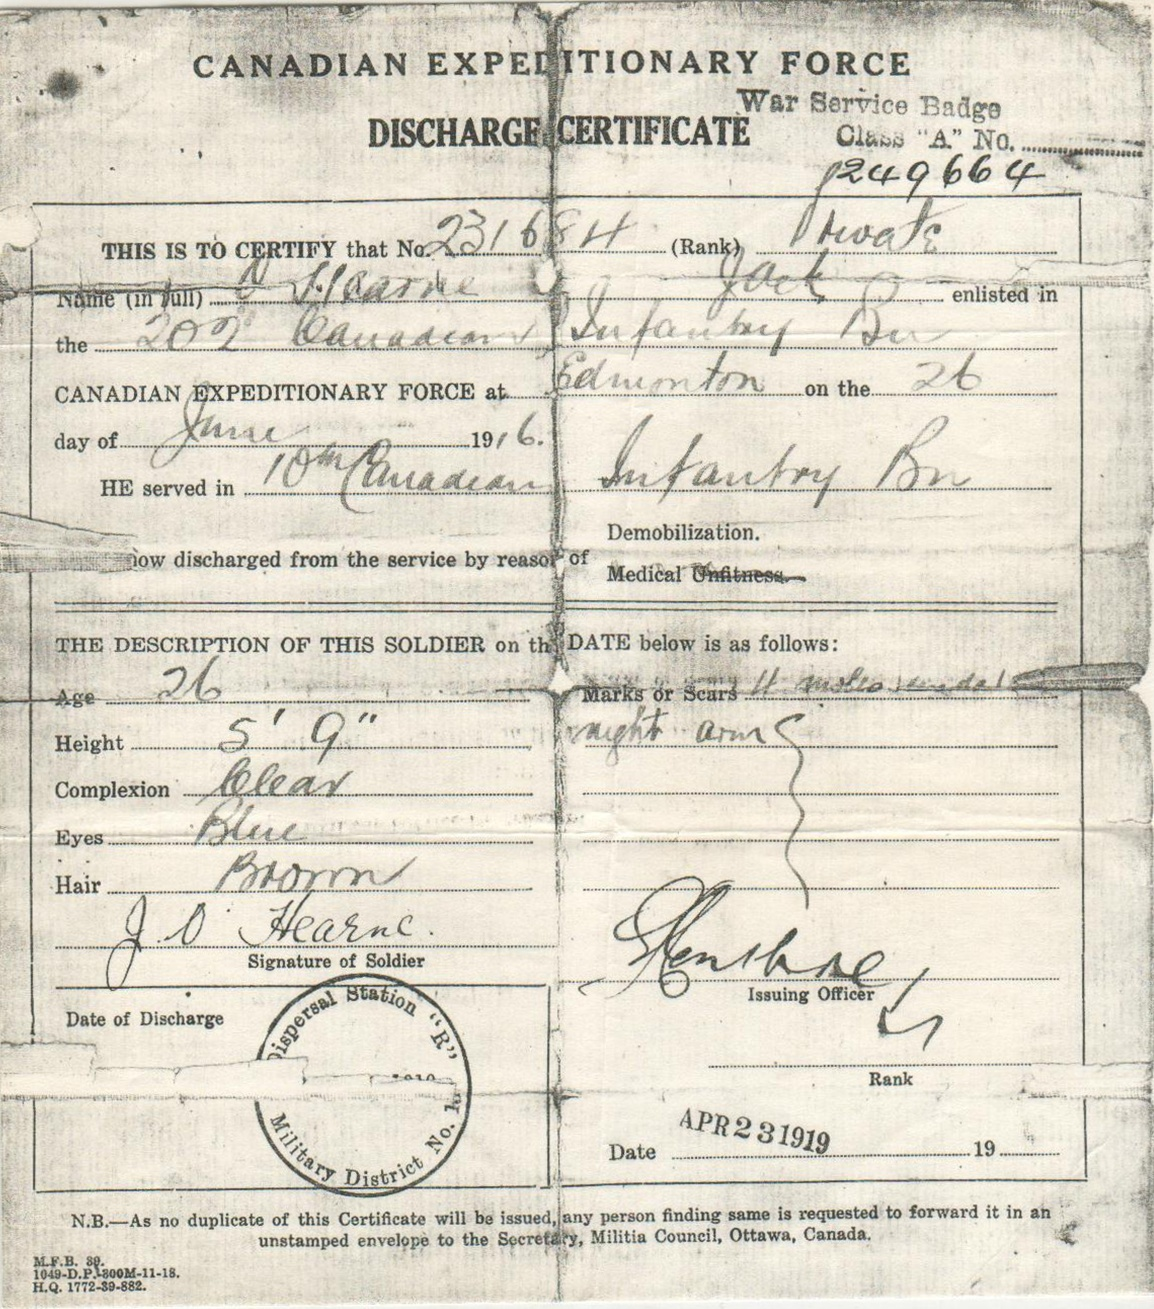 CANADIAN EXPEDITIONARY FORCE
War Service Badge
DISCHARGE CERTIFICATE
Class "A" No.
249664
THIS IS TO CERTIFY that No. 231684 (Rank) Private
Name (in full) D Hearne Jack enlisted in
the 202 Canadian Infantry Bn
CANADIAN EXPEDITIONARY FORCE at Edmonton on the 26
day of June 1916.
HE served in 10th Canadian Infantry Bn
Demobilization.
now discharged from the service by reason of
Medical Unfitness.
THE DESCRIPTION OF THIS SOLDIER on the DATE below is as follows:
Age 26 Marks or Scars 4 moles
Height 5' 9" right arm
Complexion Clear
Eyes Blue
Hair Brown
J. D. Hearne.
Signature of Soldier
Issuing Officer
Date of Discharge
Dispersal Station "R"
Military District No. 13
Rank
Date APR 23 1919 19
N.B.—As no duplicate of this Certificate will be issued, any person finding same is requested to forward it in an
unstamped envelope to the Secretary, Militia Council, Ottawa, Canada.
M.F.B. 39.
1049-D.P.-300M-11-18.
H.Q. 1772-39-882.